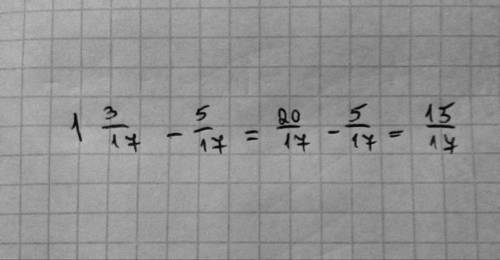 1 3/17 - 5/17 = 20/17 - 5/17 = 15/17